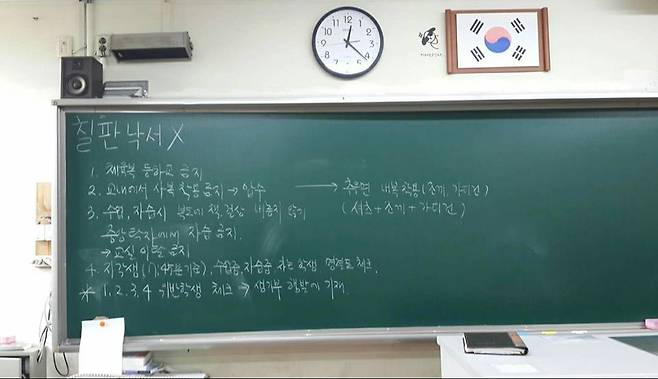 칠판낙서 X
1. 체육복 등하교 금지
2. 교내에서 사복 착용 금지 → 압수 → 추우면 내복 착용 (조끼, 가디건)
3. 수업, 자습시 복도에 책, 걸상 내놓지 않기 (셔츠 + 조끼 + 가디건)
중앙탁자에서 자습 금지.
→ 교실 이탈 금지
4. 지각생 (7:45분 기준), 수업중, 자습중 자는 학생 명렬표 체크.
* 1, 2, 3, 4 위반학생 체크 → 생기부 행발에 기재